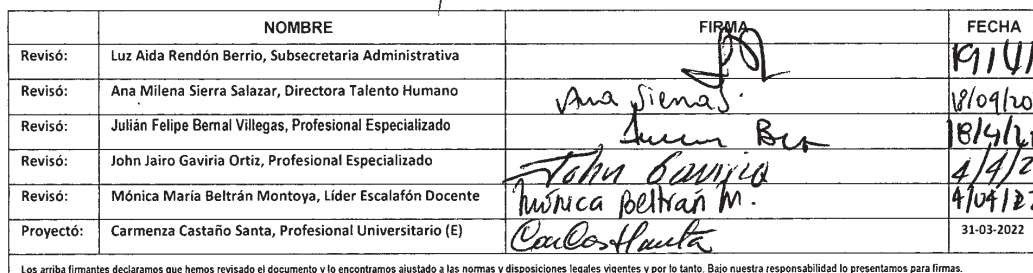 NOMBRE FIRMA FECHA
Revisó: Luz Aida Rendón Berrio, Subsecretaria Administrativa 19/4/
Revisó: Ana Milena Sierra Salazar, Directora Talento Humano Ana Sierra S. 18/04/20
Revisó: Julián Felipe Bernal Villegas, Profesional Especializado 18/4/2
Revisó: John Jairo Gaviria Ortiz, Profesional Especializado John Gaviria 4/4/2
Revisó: Mónica María Beltrán Montoya, Líder Escalafón Docente Mónica Beltrán M. 4/04/22
Proyectó: Carmenza Castaño Santa, Profesional Universitario (E) 31-03-2022
Los arriba firmantes declaramos que hemos revisado el documento y lo encontramos ajustado a las normas y disposiciones legales vigentes y por lo tanto. Bajo nuestra responsabilidad lo presentamos para firmas.